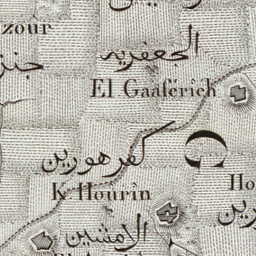 zoûr
الجعفريه
El Gaaférich
كفر هورين
K. Hourin
Ho
الامشين